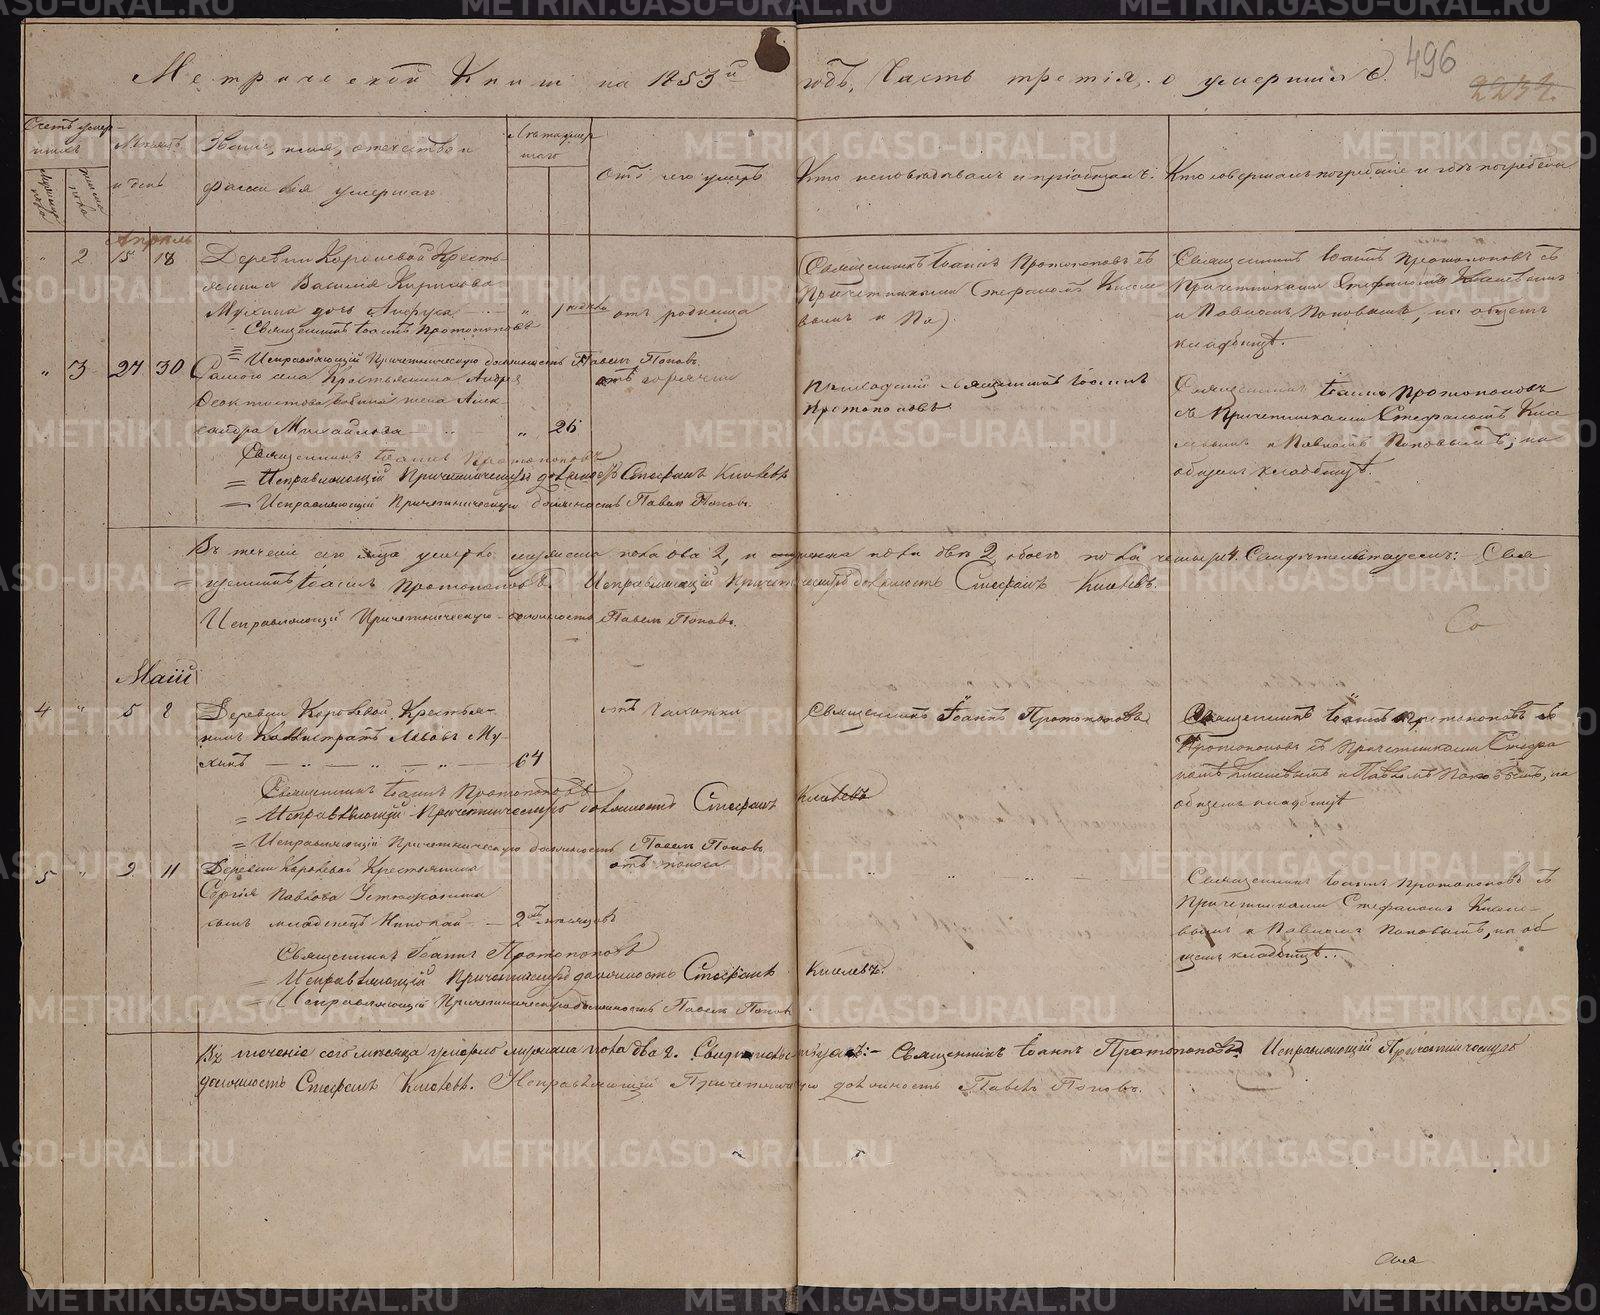 Метрической Книги на 1853й годъ, Часть третія, о умершихъ.
496
Счетъ умерших
Мѣсяцъ и день
Званіе, имя, отечество и фамилія умершаго
Лѣта умершаго
Отъ чего умеръ
Кто исповѣдывалъ и пріобщалъ:
Кто совершалъ погребеніе и гдѣ погребены
мужеска пола
женска пола
Апрѣль
" 2 15 18
Деревни Королевой Кресть-
янина Василія Кирилова
Мухина дочь
отъ родимца
Священникъ Іоаннъ Протопоповъ
Исправляющій Причетническую должность Павелъ Поповъ
Священникъ Іоаннъ Протопоповъ съ
Причетниками Стефаномъ Кисле-
вымъ и Па)
Священникъ Іоаннъ Протопоповъ съ
Причетниками Стефаномъ Киселевымъ
и Павломъ Поповымъ, на общемъ
кладбищѣ.
" 3 27 30
Самого села Крестьянина Андрея
жена Алек-
сандра Михайлова " 26
отъ горячки
Приходскій Священникъ Іоаннъ
Протопоповъ
Священникъ Іоаннъ Протопоповъ
съ Причетниками Стефаномъ Кисе-
левымъ и Павломъ Поповымъ, на
общемъ кладбищѣ.
Священникъ Іоаннъ Протопоповъ
= Исправляющій Причетническую должность Стефанъ Киселевъ
= Исправляющій Причетническую должность Павелъ Поповъ.
Въ теченіе сего м-ца умерло мужеска пола два 2, и женска пола двѣ 2 обоего пола четыре 4. Свидѣтельствуемъ: Свя-
щенникъ Іоаннъ Протопоповъ. Исправляющій Причетническую должность Стефанъ Киселевъ.
Исправляющій Причетническую должность Павелъ Поповъ.
Со
Маій
4 " 5 8
Деревни Королевой Крестья-
нинъ Каллистратъ Львовъ Му-
хинъ — " — " — " — 64
отъ чахотки
Священникъ Іоаннъ Протопоповъ
Священникъ Іоаннъ Протопоповъ съ
Протопоповъ съ Причетниками Стефа-
номъ Киселевымъ и Павломъ Поповымъ, на
общемъ кладбищѣ
Священникъ Іоаннъ Протопоповъ
= Исправляющій Причетническую должность Стефанъ Киселевъ
= Исправляющій Причетническую должность Павелъ Поповъ
5 " 9 11
Деревни Королевой Крестьянина
Сергія Павлова Устюжанина
сынъ младенецъ Николай — 2хъ мѣсяцовъ
отъ поноса
Священникъ Іоаннъ Протопоповъ съ
Причетниками Стефаномъ Кисле-
вымъ и Павломъ Поповымъ, на об-
щемъ кладбищѣ.
Священникъ Іоаннъ Протопоповъ
= Исправляющій Причетническую должность Стефанъ Киселевъ.
= Исправляющій Причетническую должность Павелъ Поповъ
Въ теченіе сего мѣсяца умерло мужеска пола два 2. Свидѣтельствуемъ:- Священникъ Іоаннъ Протопоповъ. Исправляющій Причетническую
должность Стефанъ Киселевъ. Исправляющій Причетническую должность Павелъ Поповъ.
METRIKI.GASO-URAL.RU